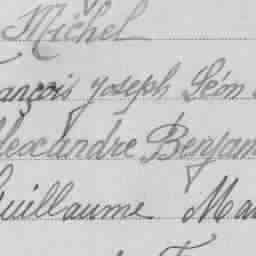 Michel
ançois Joseph Léon
lexandre Benjam
uillaume Ma